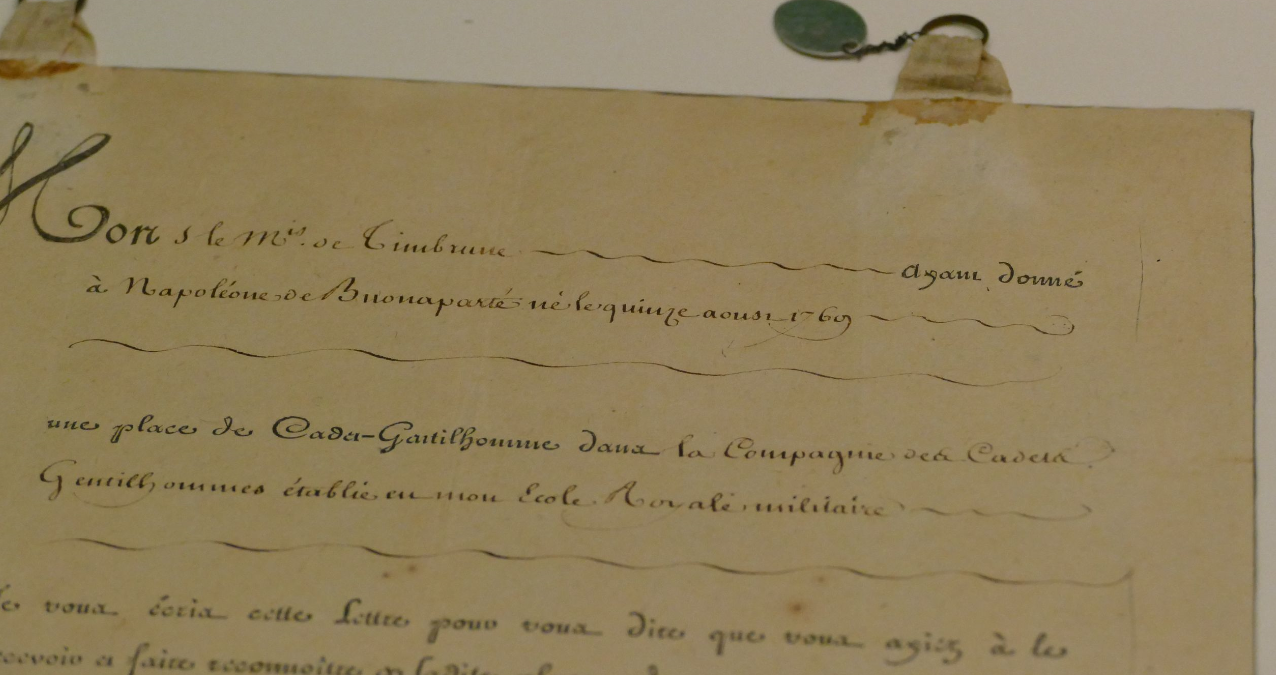 Mons le Mis. de Timbrune ayant donné
à Napoléone de Buonaparté né le quinze aoust 1769
une place de Cadet-Gentilhomme dans la Compagnie des Cadets
Gentilhommes établie en mon Ecole Royale militaire
Je vous écris cette Lettre pour vous dire que vous ayiez à le
recevoir et faire reconnoître en ladite